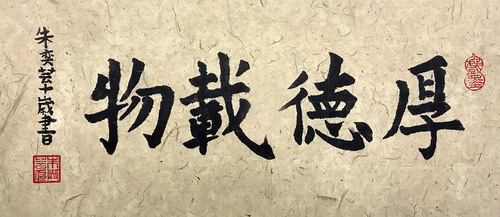 厚德載物
朱奕
歲書